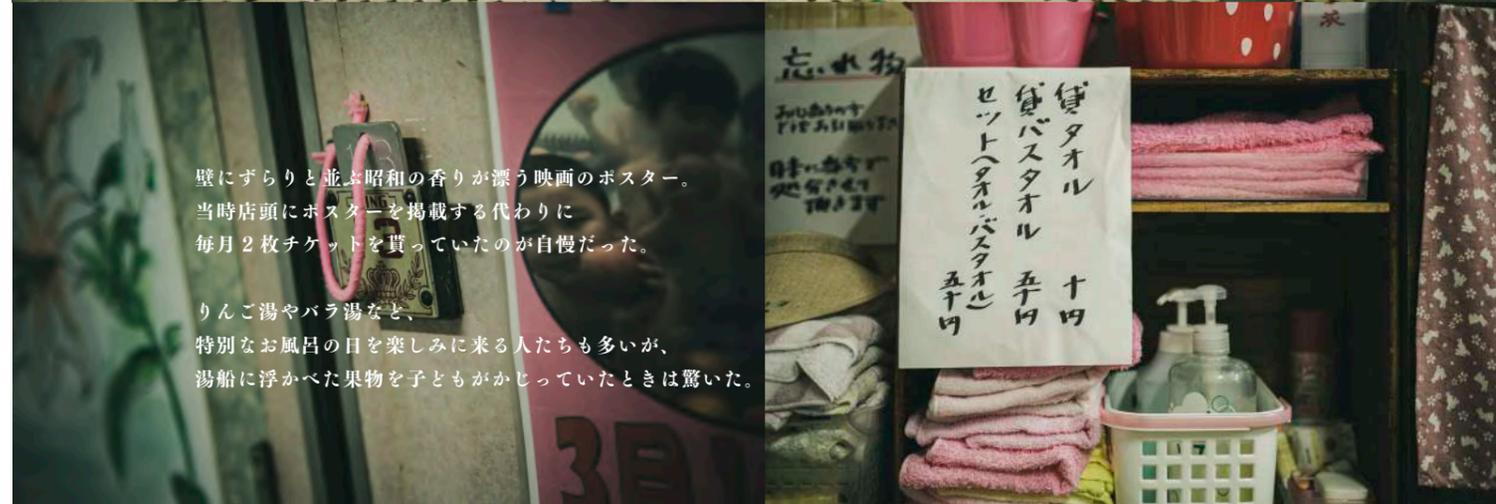 壁にずらりと並ぶ昭和の香りが漂う映画のポスター。
当時店頭にポスターを掲載する代わりに
毎月２枚チケットを貰っていたのが自慢だった。
りんご湯やバラ湯など、
特別なお風呂の日を楽しみに来る人たちも多いが、
湯船に浮かべた果物を子どもがかじっていたときは驚いた。
3日
忘れ物
貸タオル 十円
貸バスタオル 五十円
セット(タオル・バスタオル) 五十円